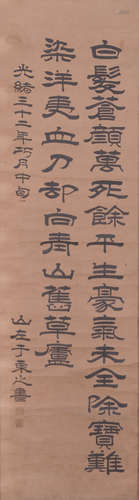 白髮蒼顏萬死餘平生豪氣未全除寶難
染洋夷血刀却向山舊草廬
光緒三十二年巧月中旬
山左于東書